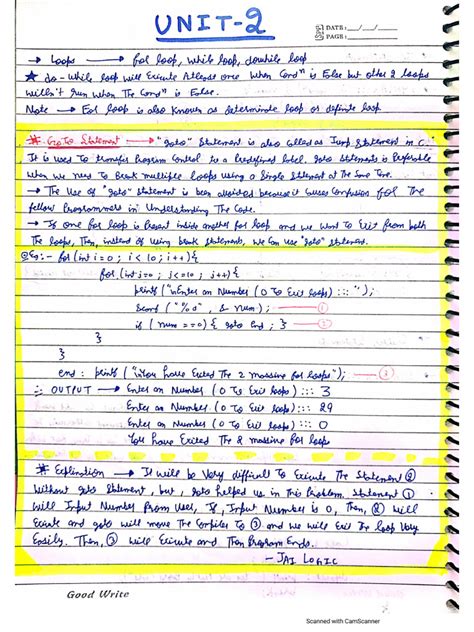 UNIT-2
DATE: __/__/__
PAGE:
→ Loops → for loop, while loop, dowhile loop
★ do-While loop will Execute Atleast once When Condⁿ is False but other 2 loops
willn't Run When The Condⁿ is False.
Note → For loop is also known as determinate loop or definite loop
# GoTo Statement → "goto" Statement is also called as Jump Statement in C.
It is used To transfer Program Control to a Predefined label. goto Statements is Preferable
when we need To Break multiple loops using a Single Statement at the Same Time.
→ The Use of "goto" Statement is been avoided because it Causes Confusion for The
fellow Programmers in Understanding The Code.
→ If one for loop is Present inside another for loop and we Want To Exit from both
The loops, Then, instead of using break Statements, we Can use "goto" Statement.
Eg:- for (int i=0 ; i<10 ; i++) {
for (int j=0 ; j<=10 ; j++) {
printf ("\nEnter an Number (0 To Exit loops) ::: ");
Scanf ("%d", & num); — ①
if (num ==0) { goto end ; } — ②
}
}
end : printf ("\nYou have Exited The 2 massive for loops"); — ③
:: OUTPUT → Enter an Number (0 To Exit loops) ::: 3
Enter an Number (0 To Exit loops) ::: 29
Enter an Number (0 To Exit loops) ::: 0
You have Exited The 2 massive for loops
# Explination → It will be Very difficult To Execute The Statement ②
Without goto Statement, but, goto helped us in This Problem. Statement ①
Will Input Number From User, If, Input Number is 0, Then, ② will
Execute and goto will move The Compiler To ③ and we will Exit The loop Very
Easily. Then, ③ will Execute and Then Program Ends.
- JAI LOGIC
Good Write
Scanned with CamScanner